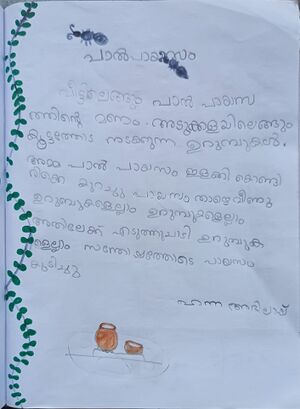 പാൽപായസം
വീട്ടിലെങ്ങും പാൽ പായസ
ത്തിന്റെ മണം. അടുക്കളയിലെങ്ങും
കൂട്ടത്തോടെ നടക്കുന്ന ഉറുമ്പുകൾ.
അമ്മ പാൽ പായസം ഇളക്കി കൊണ്ടി
രിക്കെ കുറച്ചു പായസം താഴെവീണു
ഉറുമ്പുകളെല്ലാം ഉറുമ്പുകളെല്ലാം
അതിലേക്ക് എടുത്തുചാടി ഉറുമ്പുക
ളെല്ലാം സന്തോഷത്തോടെ പായസം
കുടിച്ചു
ഹന്ന അഭിലാഷ്